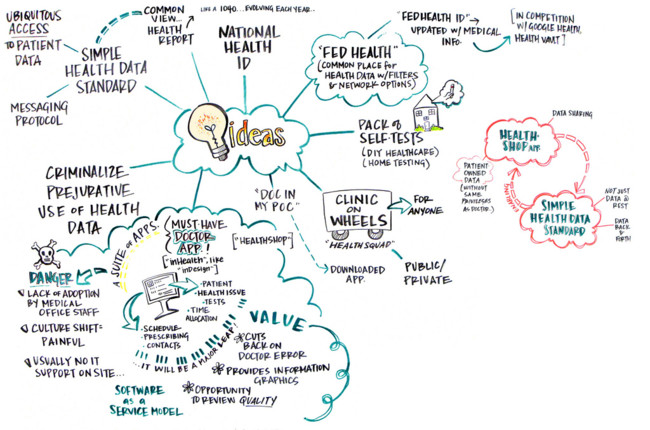 UBIQUITOUS
ACCESS
TO PATIENT
DATA
COMMON
VIEW...
HEALTH
REPORT
LIKE A 1040...EVOLVING EACH YEAR...
SIMPLE
HEALTH DATA
STANDARD
MESSAGING
PROTOCOL
NATIONAL
HEALTH
ID
"FED HEALTH"
(COMMON PLACE for
HEALTH DATA w/FILTERS
& NETWORK OPTIONS)
"FEDHEALTH ID"
UPDATED w/MEDICAL
INFO.
[IN COMPETITION
w/GOOGLE HEALTH,
HEALTH VAULT]
ideas
PACK of
SELF-TESTS
(DIY HEALTHCARE)
(HOME TESTING)
CRIMINALIZE
PREJURATIVE
USE OF HEALTH
DATA
"DOC IN
MY POC"
DOWNLOADED
APP.
CLINIC
ON
WHEELS
"HEALTH SQUAD"
FOR
ANYONE
PUBLIC/
PRIVATE
DATA SHARING
HEALTH-
SHOP APP.
PATIENT
OWNED
DATA
(WITHOUT
SAME
PRIVILEGES
AS DOCTOR.)
SIMPLE
HEALTH DATA
STANDARD
NOT JUST
DATA @
REST
DATA
BACK &
FORTH
A SUITE of APPS.
(MUST-HAVE
DOCTOR-
APP!
["inHealth", like
"inDesign"]
["HEALTHSHOP"]
DANGER
LACK of ADOPTION
BY MEDICAL
OFFICE STAFF
CULTURE SHIFT=
PAINFUL
USUALLY NO IT
SUPPORT ON SITE...
•PATIENT
•HEALTH ISSUE
•TESTS
•TIME
ALLOCATION
•SCHEDULE
•PRESCRIBING
•CONTACTS
...IT WILL BE A MAJOR LEAP!
VALUE
CUTS
BACK ON
DOCTOR ERROR
PROVIDES INFORMATION
GRAPHICS
OPPORTUNITY
TO REVIEW QUALITY
SOFTWARE
as a
SERVICE MODEL